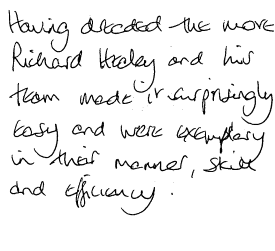 Having decided the move
Richard Healey and his
team made it surprisingly
easy and were exemplary
in their manner, skill
and efficiency.